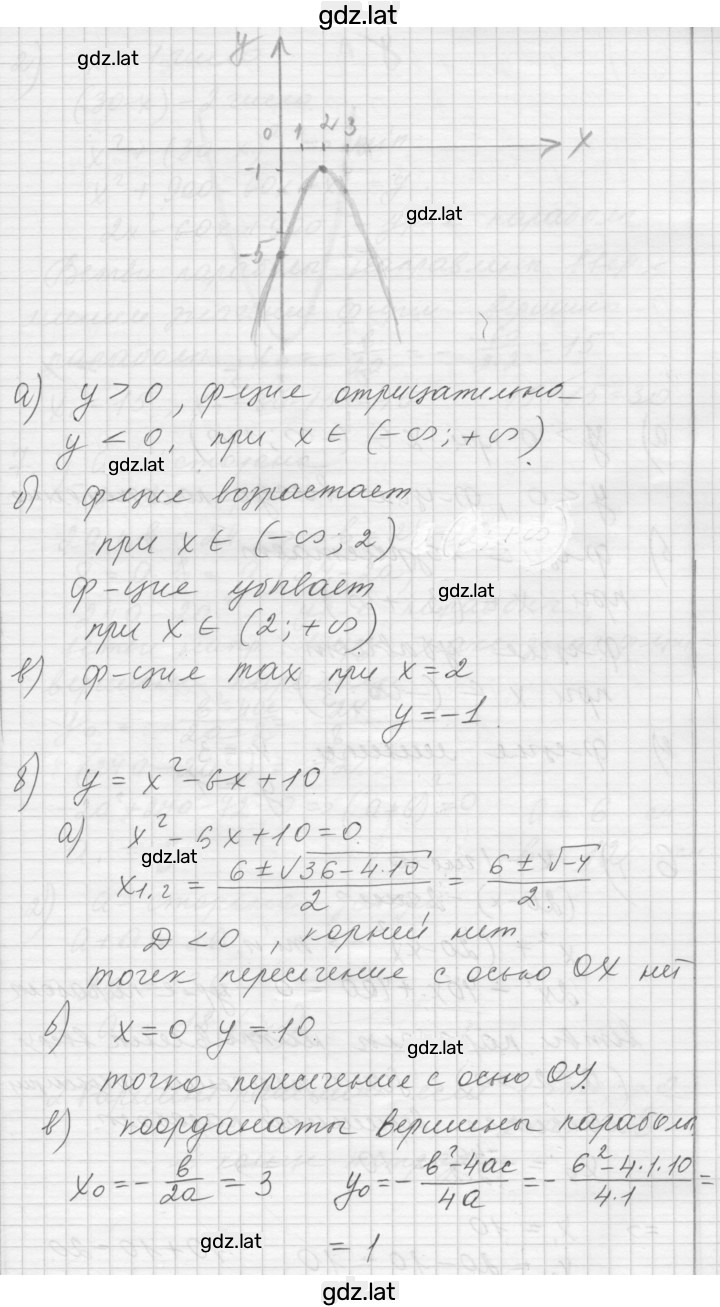 gdz.lat
gdz.lat
y
0 1 2 3
x
-1
gdz.lat
-5
а) y > 0, ф-цие отрицательно
y < 0, при x ∈ (-∞; +∞)
gdz.lat
б) ф-цие возрастает
при x ∈ (-∞; 2)
ф-цие убывает
gdz.lat
при x ∈ (2; +∞)
в) ф-цие max при x = 2
y = -1
б) y = x² - 6x + 10
а) x² - 6x + 10 = 0
gdz.lat
x₁,₂ = (6 ± √(36 - 4·10))/2 = (6 ± √-4)/2
D < 0, корней нет
точек пересечение с осью OX нет
б) x = 0 y = 10.
gdz.lat
точка пересечение с осью OY.
в) координаты вершины параболы
x₀ = - в/2a = 3 y₀ = - (в² - 4ac)/4a = - (6² - 4·1·10)/4·1 =
gdz.lat
= 1
gdz.lat